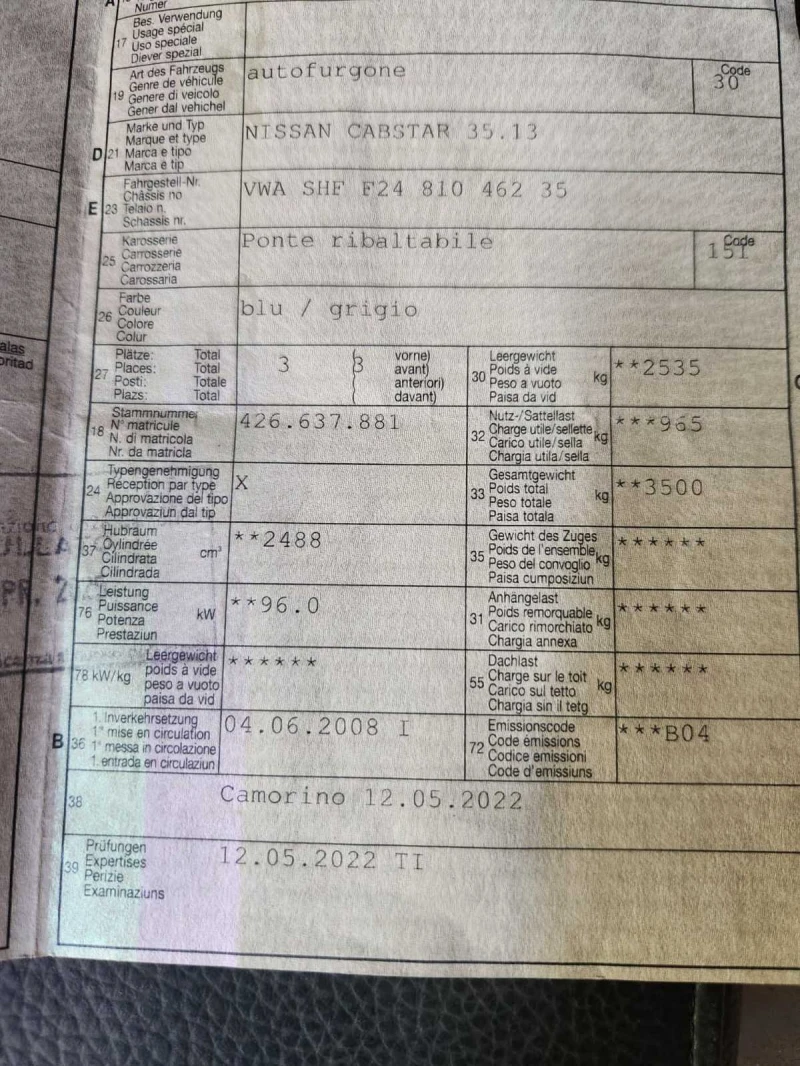 Numer
17
Bes. Verwendung
Usage spécial
Uso speciale
Diever spezial
19
Art des Fahrzeugs
Genre de véhicule
Genere di veicolo
Gener dal vehichel
autofurgone
Code
30
D 21
Marke und Typ
Marque et type
Marca e tipo
Marca e tip
NISSAN CABSTAR 35.13
E 23
Fahrgestell-Nr.
Châssis no
Telaio n.
Schassis nr.
VWA SHF F24 810 462 35
25
Karosserie
Carrosserie
Carrozzeria
Carossaria
Ponte ribaltabile
Code
151
26
Farbe
Couleur
Colore
Colur
blu / grigio
27
Plätze: Total
Places: Total
Posti: Totale
Plazs: Total
3 (3
vorne)
avant)
anteriori)
davant)
30
Leergewicht
Poids à vide
Peso a vuoto
Paisa da vid
kg
**2535
18
Stammnummer
N° matricule
N. di matricola
Nr. da matricla
426.637.881
32
Nutz-/Sattellast
Charge utile/sellette
Carico utile/sella
Chargia utila/sella
kg
***965
24
Typengenehmigung
Réception par type
Approvazione del tipo
Approvaziun dal tip
X
33
Gesamtgewicht
Poids total
Peso totale
Paisa totala
kg
**3500
37
Hubraum
Cylindrée
Cilindrata
Cilindrada
cm³
**2488
35
Gewicht des Zuges
Poids de l'ensemble
Peso del convoglio
Paisa cumposiziun
kg
******
76
Leistung
Puissance
Potenza
Prestaziun
kW
**96.0
31
Anhängelast
Poids remorquable
Carico rimorchiato
Chargia annexa
kg
******
78 kW/kg
Leergewicht
poids à vide
peso a vuoto
paisa da vid
******
55
Dachlast
Charge sur le toit
Carico sul tetto
Chargia sin il tetg
kg
******
B 36
1. Inverkehrsetzung
1re mise en circulation
1a messa in circolazione
1. entrada en circulaziun
04.06.2008 I
72
Emissionscode
Code émissions
Codice emissioni
Code d'emissiuns
***B04
38
Camorino 12.05.2022
39
Prüfungen
Expertises
Perizie
Examinaziuns
12.05.2022 TI